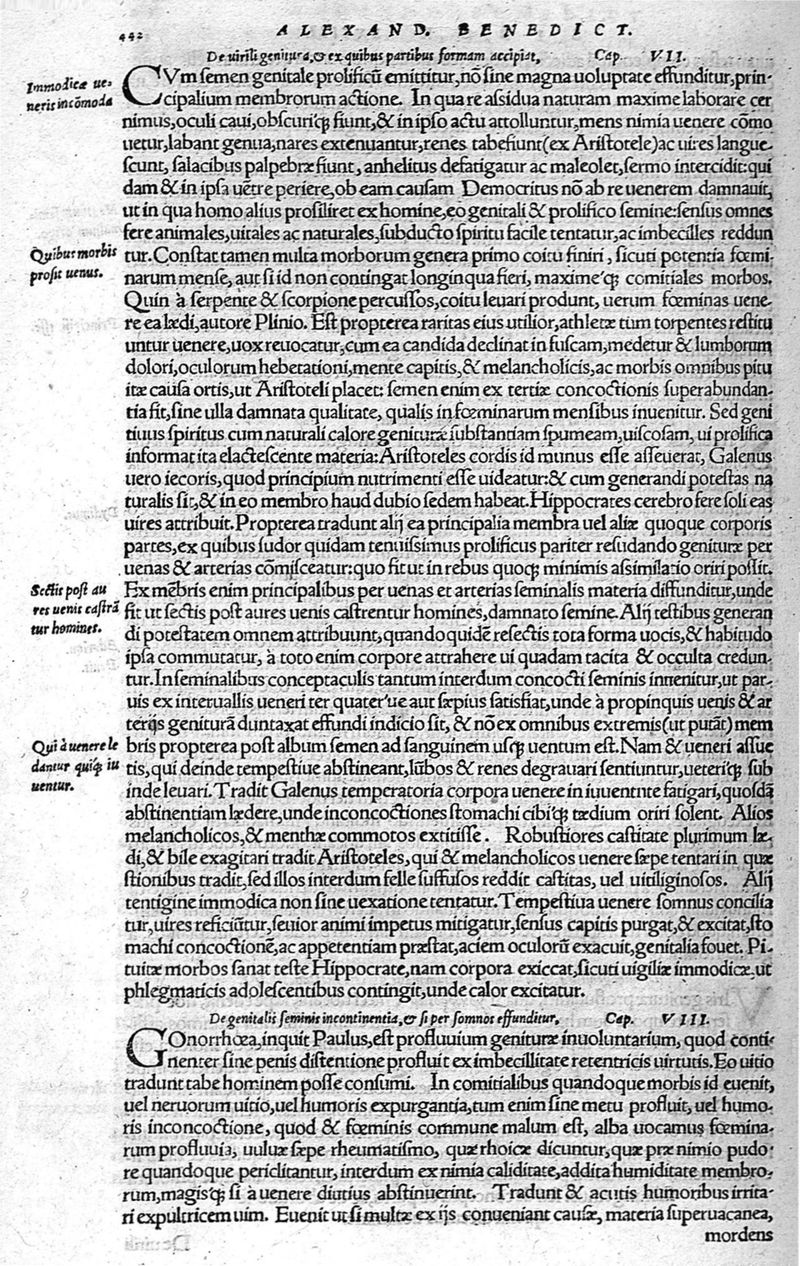 442
ALEXAND. BENEDICT.
De uirili genitura, & ex quibus partibus formam accipiat, Cap. VII.
Immodicæ ue-
neris incōmoda
CVm semen genitale prolificū emittitur, nō sine magna uoluptate effunditur, prin-
cipalium membrorum actione. In qua re assidua naturam maxime laborare cer
nimus, oculi caui, obscuriq; fiunt, & in ipso actu attolluntur, mens nimia uenere cōmo
uetur, labant genua, nares extenuantur, renes tabefiunt (ex Aristotele) ac uires langue-
scunt, salacibus palpebræ fiunt, anhelitus defatigatur ac maleolet, sermo intercidit: qui
dam & in ipsa uētre periere, ob eam causam Democritus nō ab re uenerem damnauit,
ut in qua homo alius prosiliret ex homine, eo genitali & prolifico semine: sensus omnes
fere animales, uitales ac naturales, subducto spiritu facile tentatur, ac imbecilles reddun
Quibus morbis
prosit uenus.
tur. Constat tamen multa morborum genera primo coitu finiri, sicuti potentia fœmi-
narum mense, aut si id non contingat longinqua fieri, maxime'q; comitiales morbos.
Quin à serpente & scorpione percussos, coitu leuari produnt, uerum fœminas uene-
re ea lædi, autore Plinio. Est propterea raritas eius utilior, athletæ tūm torpentes restitu
untur uenere, uox reuocatur, cum ea candida declinat in fuscam, medetur & lumborum
dolori, oculorum hebetationi, mente capitis, & melancholicis, ac morbis omnibus pitu
itæ causa ortis, ut Aristoteli placet: semen enim ex tertiæ concoctionis superabundan-
tia fit, sine ulla damnata qualitate, qualis in fœminarum mensibus inuenitur. Sed geni
tiuus spiritus cum naturali calore genituræ substantiam spumeam, uiscosam, ui prolifica
informat ita elactescente materia: Aristoteles cordis id munus esse asseuerat, Galenus
uero iecoris, quod principium nutrimenti esse uideatur: & cum generandi potestas na
turalis sit, & in eo membro haud dubio sedem habeat. Hippocrates cerebro fere soli eas
uires attribuit. Propterea tradunt alij ea principalia membra uel aliæ quoque corporis
partes, ex quibus sudor quidam tenuissimus prolificus pariter resudando genituræ per
uenas & arterias cōmisceatur: quo fit ut in rebus quoq; minimis assimilatio oriri possit.
Sectis post au
res uenis castrā
tur homines.
Ex mēbris enim principalibus per uenas et arterias seminalis materia diffunditur, unde
fit ut sectis post aures uenis castrentur homines, damnato semine. Alij testibus generan
di potestatem omnem attribuunt, quando quidē resectis tota forma uocis, & habitudo
ipsa commutatur, à toto enim corpore attrahere ui quadam tacita & occulta credun-
tur. In seminalibus conceptaculis tantum interdum concocti seminis inuenitur, ut par-
uis ex interuallis ueneri ter quater'ue aut sæpius satisfiat, unde à propinquis uenis & ar
terijs geniturā duntaxat effundi indicio sit, & nō ex omnibus extremis (ut putāt) mem
Qui à uenere le
dantur quiq; iu
uentur.
bris propterea post album semen ad sanguinem usq; uentum est. Nam & ueneri assue
tis, qui deinde tempestiue abstineant, lūbos & renes degrauari sentiuntur, ueteri'q; sub
inde leuari. Tradit Galenus temperatoria corpora uenere in iuuentute fatigari, quosdā
abstinentiam lædere, unde inconcoctiones stomachi cibi'q; tædium oriri solent. Alios
melancholicos, & menthæ commotos extitisse. Robustiores castitate plurimum læ-
di, & bile exagitari tradit Aristoteles, qui & melancholicos uenere sæpe tentari in quæ
stionibus tradit, sed illos interdum felle suffusos reddit castitas, uel uitiliginosos. Alij
tentigine immodica non sine uexatione tentatur. Tempestiua uenere somnus concilia
tur, uires reficiūtur, seuior animi impetus mitigatur, sensus capitis purgat, & excitat, sto
machi concoctionē, ac appetentiam præstat, aciem oculorū exacuit, genitalia fouet. Pi-
tuitæ morbos sanat teste Hippocrate, nam corpora exiccat, sicuti uigiliæ immodicæ, ut
phlegmaticis adolescentibus contingit, unde calor excitatur.
De genitalis seminis incontinentia, & si per somnos effunditur, Cap. VIII.
GOnorrhœa, inquit Paulus, est profluuium genituræ inuoluntarium, quod conti-
nenter sine penis distentione profluit ex imbecillitate retentricis uirtutis. Eo uitio
tradunt tabe hominem posse consumi. In comitialibus quandoque morbis id euenit,
uel neruorum uitio, uel humoris expurgantia, tum enim sine metu profluit, uel humo-
ris inconcoctione, quod & fœminis commune malum est, alba uocamus fœmina-
rum profluuia, uuluæ sæpe rheumatismo, quæ rhoicæ dicuntur, quæ præ nimio pudo-
re quandoque periclitantur, interdum ex nimia caliditate, addita humiditate membro-
rum, magis'q; si à uenere diutius abstinuerint. Tradunt & acutis humoribus irrita-
ri expultricem uim. Euenit ut si multæ ex ijs conueniant causæ, materia superuacanea,
mordens